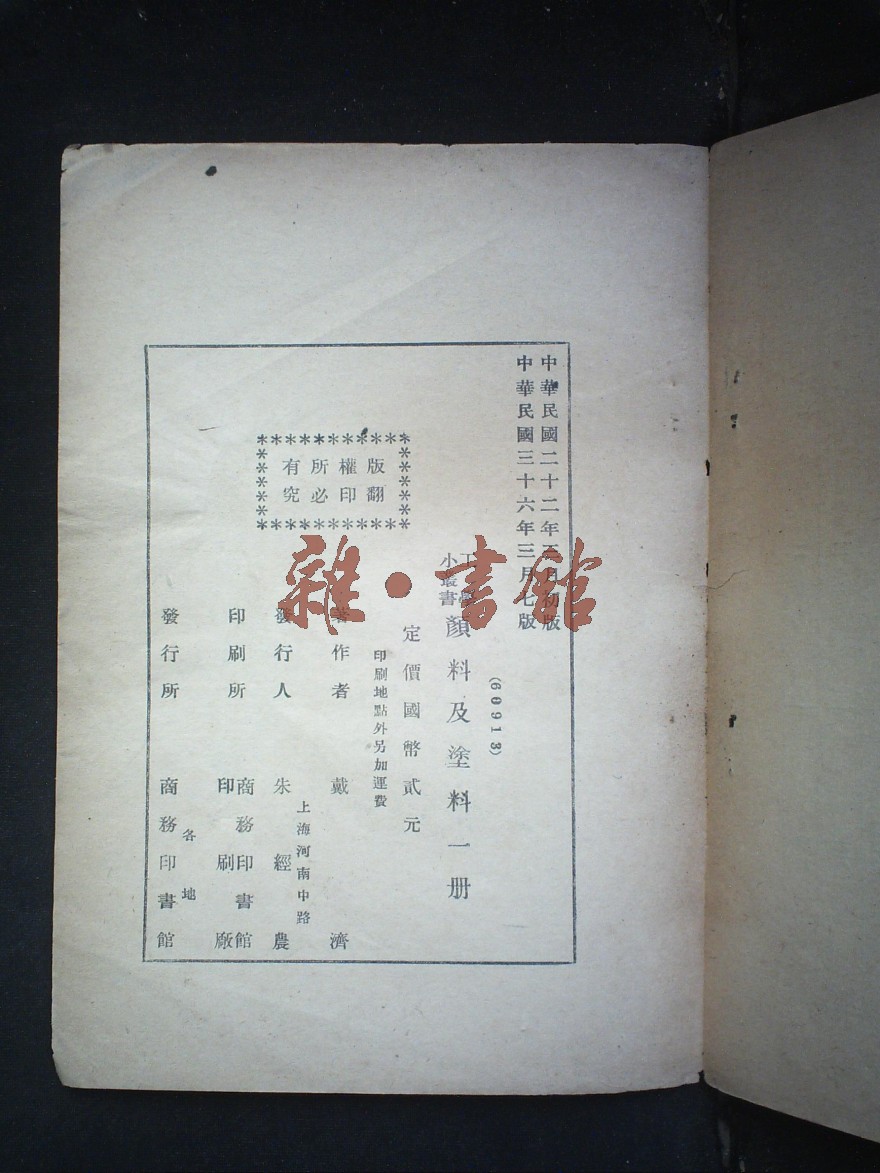 中華民國二十二年五月初版
中華民國三十六年三月七版
(60913)
工學
小叢書
顏料及塗料一册
定價國幣貳元
印刷地點外另加運費
版權所有
翻印必究
著作者 戴濟
上海河南中路
發行人 朱經農
印刷所 商務印書館
印刷廠
各地
發行所 商務印書館
雜·書館